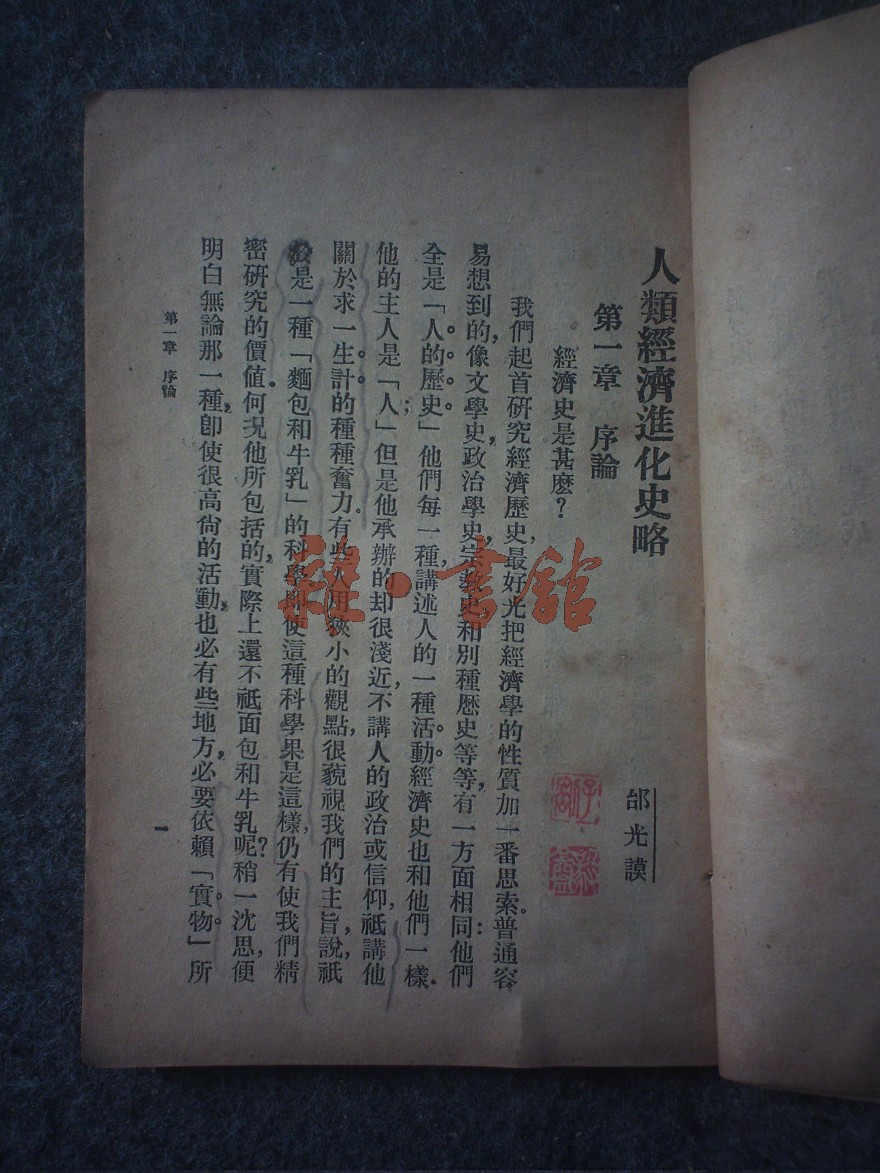 人類經濟進化史略
邰光謨
第一章 序論
經濟史是甚麽?
我們起首研究經濟歷史,最好先把經濟學的性質加一番思索。普通容
易想到的,像文學史,政治學史,宗教史,和別種歷史等等,有一方面相同:他們
全是「人的歷史」他們每一種,講述人的一種活動。經濟史也和他們一樣.
他的主人是「人」;但是他承辦的却很淺近,不講人的政治或信仰,祗講他
關於求一生計的種種奮力.有些人用狹小的觀點,很藐視我們的主旨,說,祇
是一種「麵包和牛乳」的科學.即使這種科學果是這樣,仍有使我們精
密研究的價值.何况他所包括的,實際上還不祗面包和牛乳呢?稍一沈思,便
明白無論那一種,卽使很高尙的活動,也必有些地方,必要依賴「實物」所
第一章 序論
一
雜·書舘